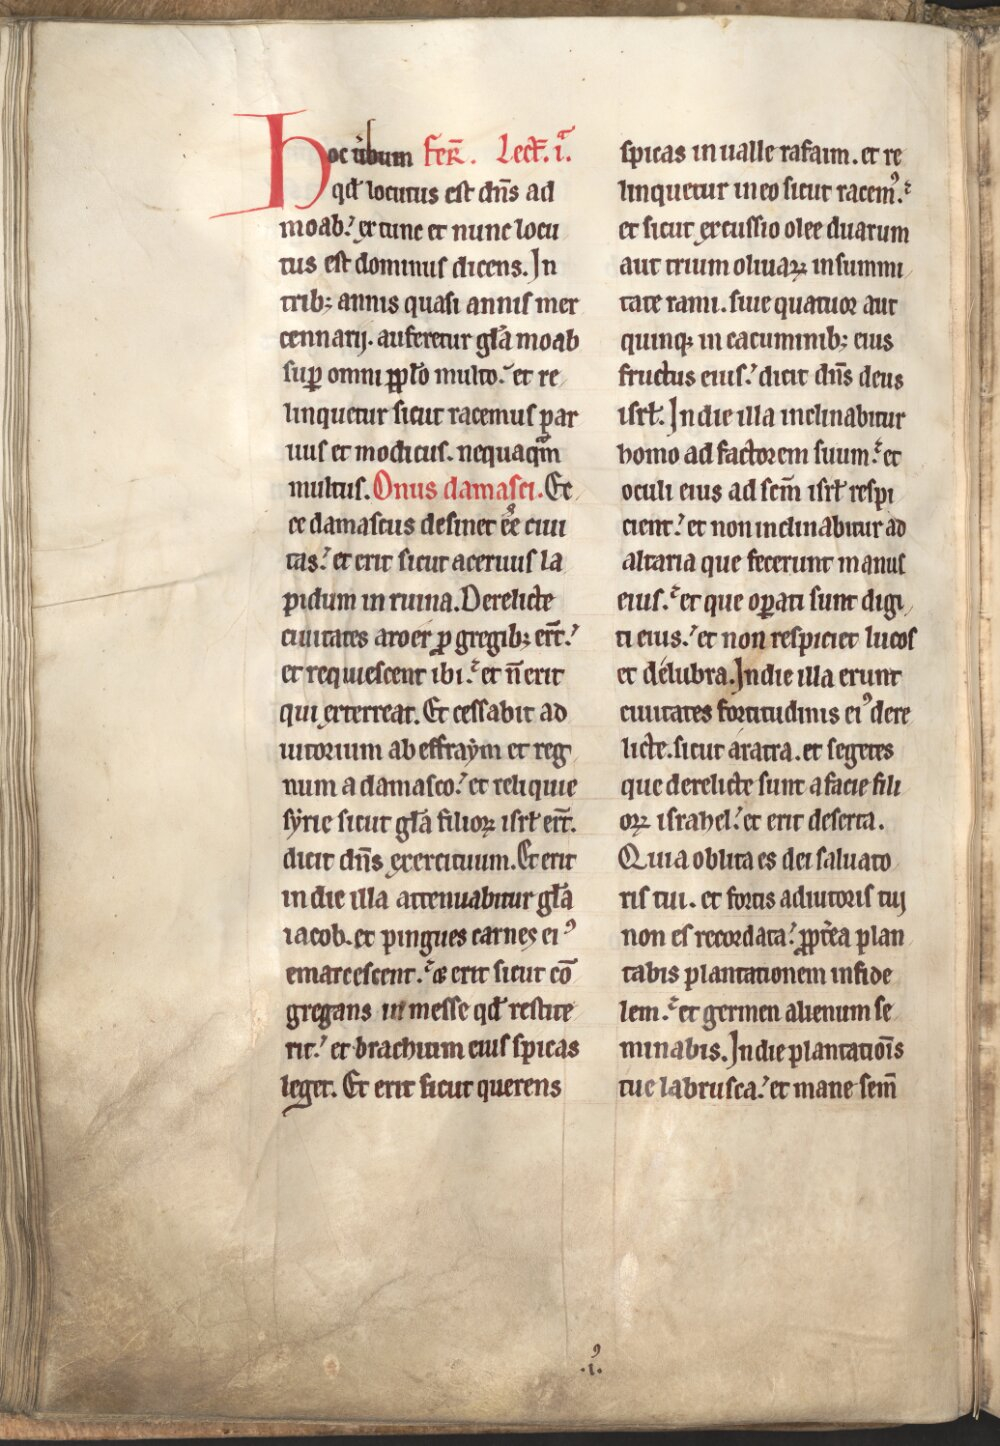 Hoc ũbum Fer̃. Lect̃. iᵃ.
qđ locutus est dñs ad
moab.ˀ ex tunc et nunc locu
tus est dominuſ dicens. In
trib; annis quasi anniſ mer
cennarij. auferetur gła moab
ſuꝑ omni ꝑpło multo.ˀ et re
linquetur sicut racemuſ par
uuſ et modicuſ. nequaqᵃm
multus. Onus damaſci. Ec
ce damaſcus deſinet eẽ ciui
tas.ˀ et erit sicut aceruuſ la
pidum in ruina. Derelicte
ciuitates aroer ꝓ gregib; eřt.ˀ
et requieſcent ibi.ˀ et ñ erit
qui exterreat. Et ceſſabit ad
iutorium ab effraẏm et reg
num a damaſco.ˀ et reliquie
ſẏrie sicut gła filioꝝ iſrł eřt.
dicit dñs exercituum. Et erit
in die illa attenuabitur gła
iacob. et pingues carnes eiꝰ
emarceſcent.ˀ & erit sicut cõ
gregans in meſſe qđ reſtite
rit.ˀ et brachium eiuſ ſpicas
leget. Et erit sicut querens
ſpicas in ualle rafaim. et re
linquetur in eo sicut racemꝰ.ˀ
et sicut excuſſio olee duarum
aut trium oliuaꝝ in ſummi
tate rami. ſiue quatuor aut
quinqꝫ in cacuminib; eius
fructus eiuſ.ˀ dicit dñs deus
iſrł. In die illa inclinabitur
homo ad factorem ſuum.ˀ et
oculi eius ad ſcm̃ iſrł reſpi
cient.ˀ et non inclinabitur ad
altaria que fecerunt manuſ
eiuſ.ˀ et que oꝑati ſunt digi
ti eius.ˀ et non reſpiciet lucoſ
et delubra. In die illa erunt
ciuitates fortitudinis eiꝰ dere
licte. sicut aratra. et ſegetes
que derelicte ſunt a facie fili
oꝝ iſrahel.ˀ et erit deſerta.
Quia oblita es dei ſaluato
riſ tui. et fortis adiutoriſ tuj
non eſ recordata.ˀ ꝓpt̃ea plan
tabis plantationem infide
lem.ˀ et germen alienum ſe
minabis. In die plantatiõis
tue labruſca.ˀ et mane ſem̃
.iꝰ.